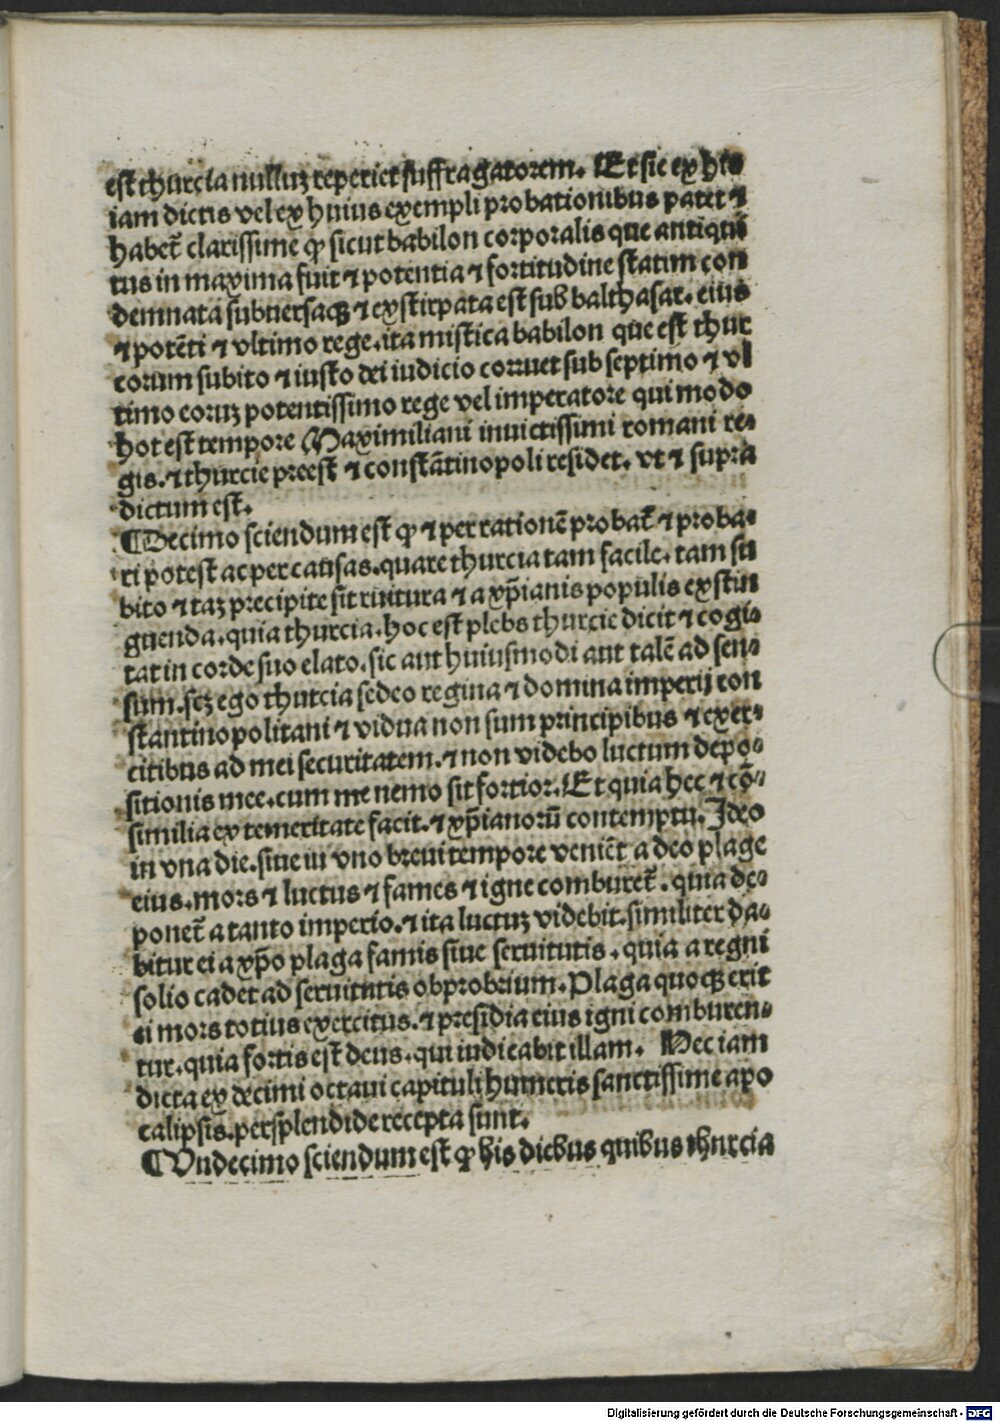 est thurcia nulluꝫ reperiet suffragatorem. Et sic ex his
iam dictis vel ex huius exempli probationibus patet ⁊
habet̄ clarissime ꝙ sicut babilon corporalis que antiqui
tus in maxima fuit ⁊ potentia ⁊ fortitudine statim con
demnata subuersaqꝫ ⁊ exstirpata est sub balthasar. eius
⁊ potēti ⁊ vltimo rege. ita mistica babilon que est thur
corum subito ⁊ iusto dei iudicio corruet sub septimo ⁊ vl
timo eoruꝫ potentissimo rege vel imperatore qui modo
hoc est tempore Maximiliani inuictissimi romani re⸗
gis. ⁊ thurcie preest ⁊ constātinopoli residet. vt ⁊ supra
dictum est.
¶ Decimo sciendum est ꝙ ⁊ per rationē probat̄ ⁊ proba⸗
ri potest ac per causas. quare thurcia tam facile. tam su
bito ⁊ taꝫ precipite sit ruitura ⁊ a xp̄ianis populis exstin
guenda. quia thurcia. hoc est plebs thurcie dicit ⁊ cogi⸗
tat in corde suo elato. sic aut huiusmodi aut talē ad sen⸗
sum. scꝫ ego thurcia sedeo regina ⁊ domina imperij con
stantinopolitani ⁊ vidua non sum principibus ⁊ exer⸗
citibus ad mei securitatem. ⁊ non videbo luctum depo⸗
sitionis mee. cum me nemo sit fortior. Et quia hec ⁊ cō⸗
similia ex temeritate facit. ⁊ xp̄ianorū contemptu. Ideo
in vna die. siue in vno breui tempore veniēt a deo plage
eius. mors ⁊ luctus ⁊ fames ⁊ igne comburet̄. quia de⸗
ponet̄ a tanto imperio. ⁊ ita luctuꝫ videbit. similiter da⸗
bitur ei a xp̄o plaga famis siue seruitutis. quia a regni
solio cadet ad seruitutis obprobrium. Plaga quoqꝫ erit
ei mors totius exercitus. ⁊ presidia eius igni comburen⸗
tur. quia fortis est deus. qui iudicabit illam. Hec iam
dicta ex decimi octaui capituli humeris sanctissime apo
calipsis. persplendide recepta sunt.
¶ Vndecimo sciendum est ꝙ his diebus quibus thurcia
Digitalisierung gefördert durch die Deutsche Forschungsgemeinschaft - DFG